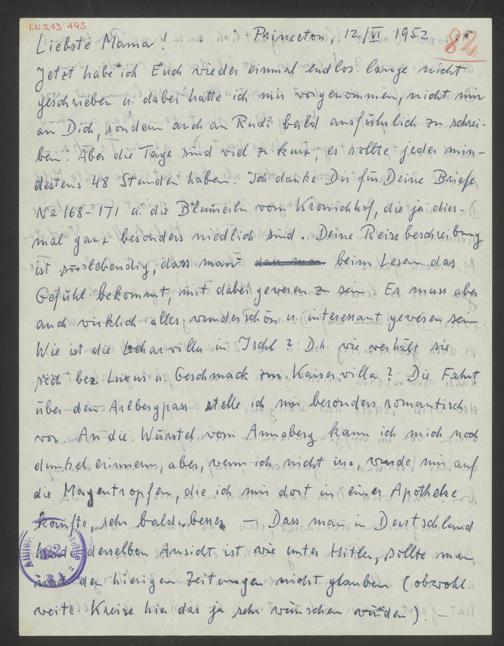 I.N. 213.195
Princeton, 12/VI 1952
82
Liebste Mama!
Jetzt habe ich Euch wieder einmal endlos lange nicht
geschrieben u. dabei hatte ich mir vorgenommen, nicht nur
an Dich, sondern auch an Rudi bald ausführlich zu schrei-
ben. Aber die Tage sind viel zu kurz, es sollte jeder min-
destens 48 Stunden haben. Ich danke Dir für Deine Briefe
N2 168-171 u. die Blümerln vom die ja dies-
mal ganz besonders niedlich sind. Deine Reisebeschreibung
ist so lebendig, dass man dass man beim Lesen das
Gefühl bekommt, mit dabei gewesen zu sein. Es muss aber
auch wirklich alles wunderschön u. interessant gewesen sein.
Wie ist die Leharvilla in Ischl? D.h. wie verhält sie
sich bez. Luxus u. Geschmack zur Kaiservilla? Die Fahrt
über den Arlbergpass stelle ich mir besonders romantisch
vor. An die Würstel vom Annaberg kann ich mich noch
dunkel erinnern, aber, wenn ich nicht irre, wurde mir auf
die Magentropfen, die ich mir dort in einer Apotheke
kaufte, sehr bald besser. – Dass man in Deutschland
derselben Ansicht ist wie unter Hitler, sollte man
den hiesigen Zeitungen nicht glauben (obwohl
weite Kreise hier das ja sehr wünschen würden). –